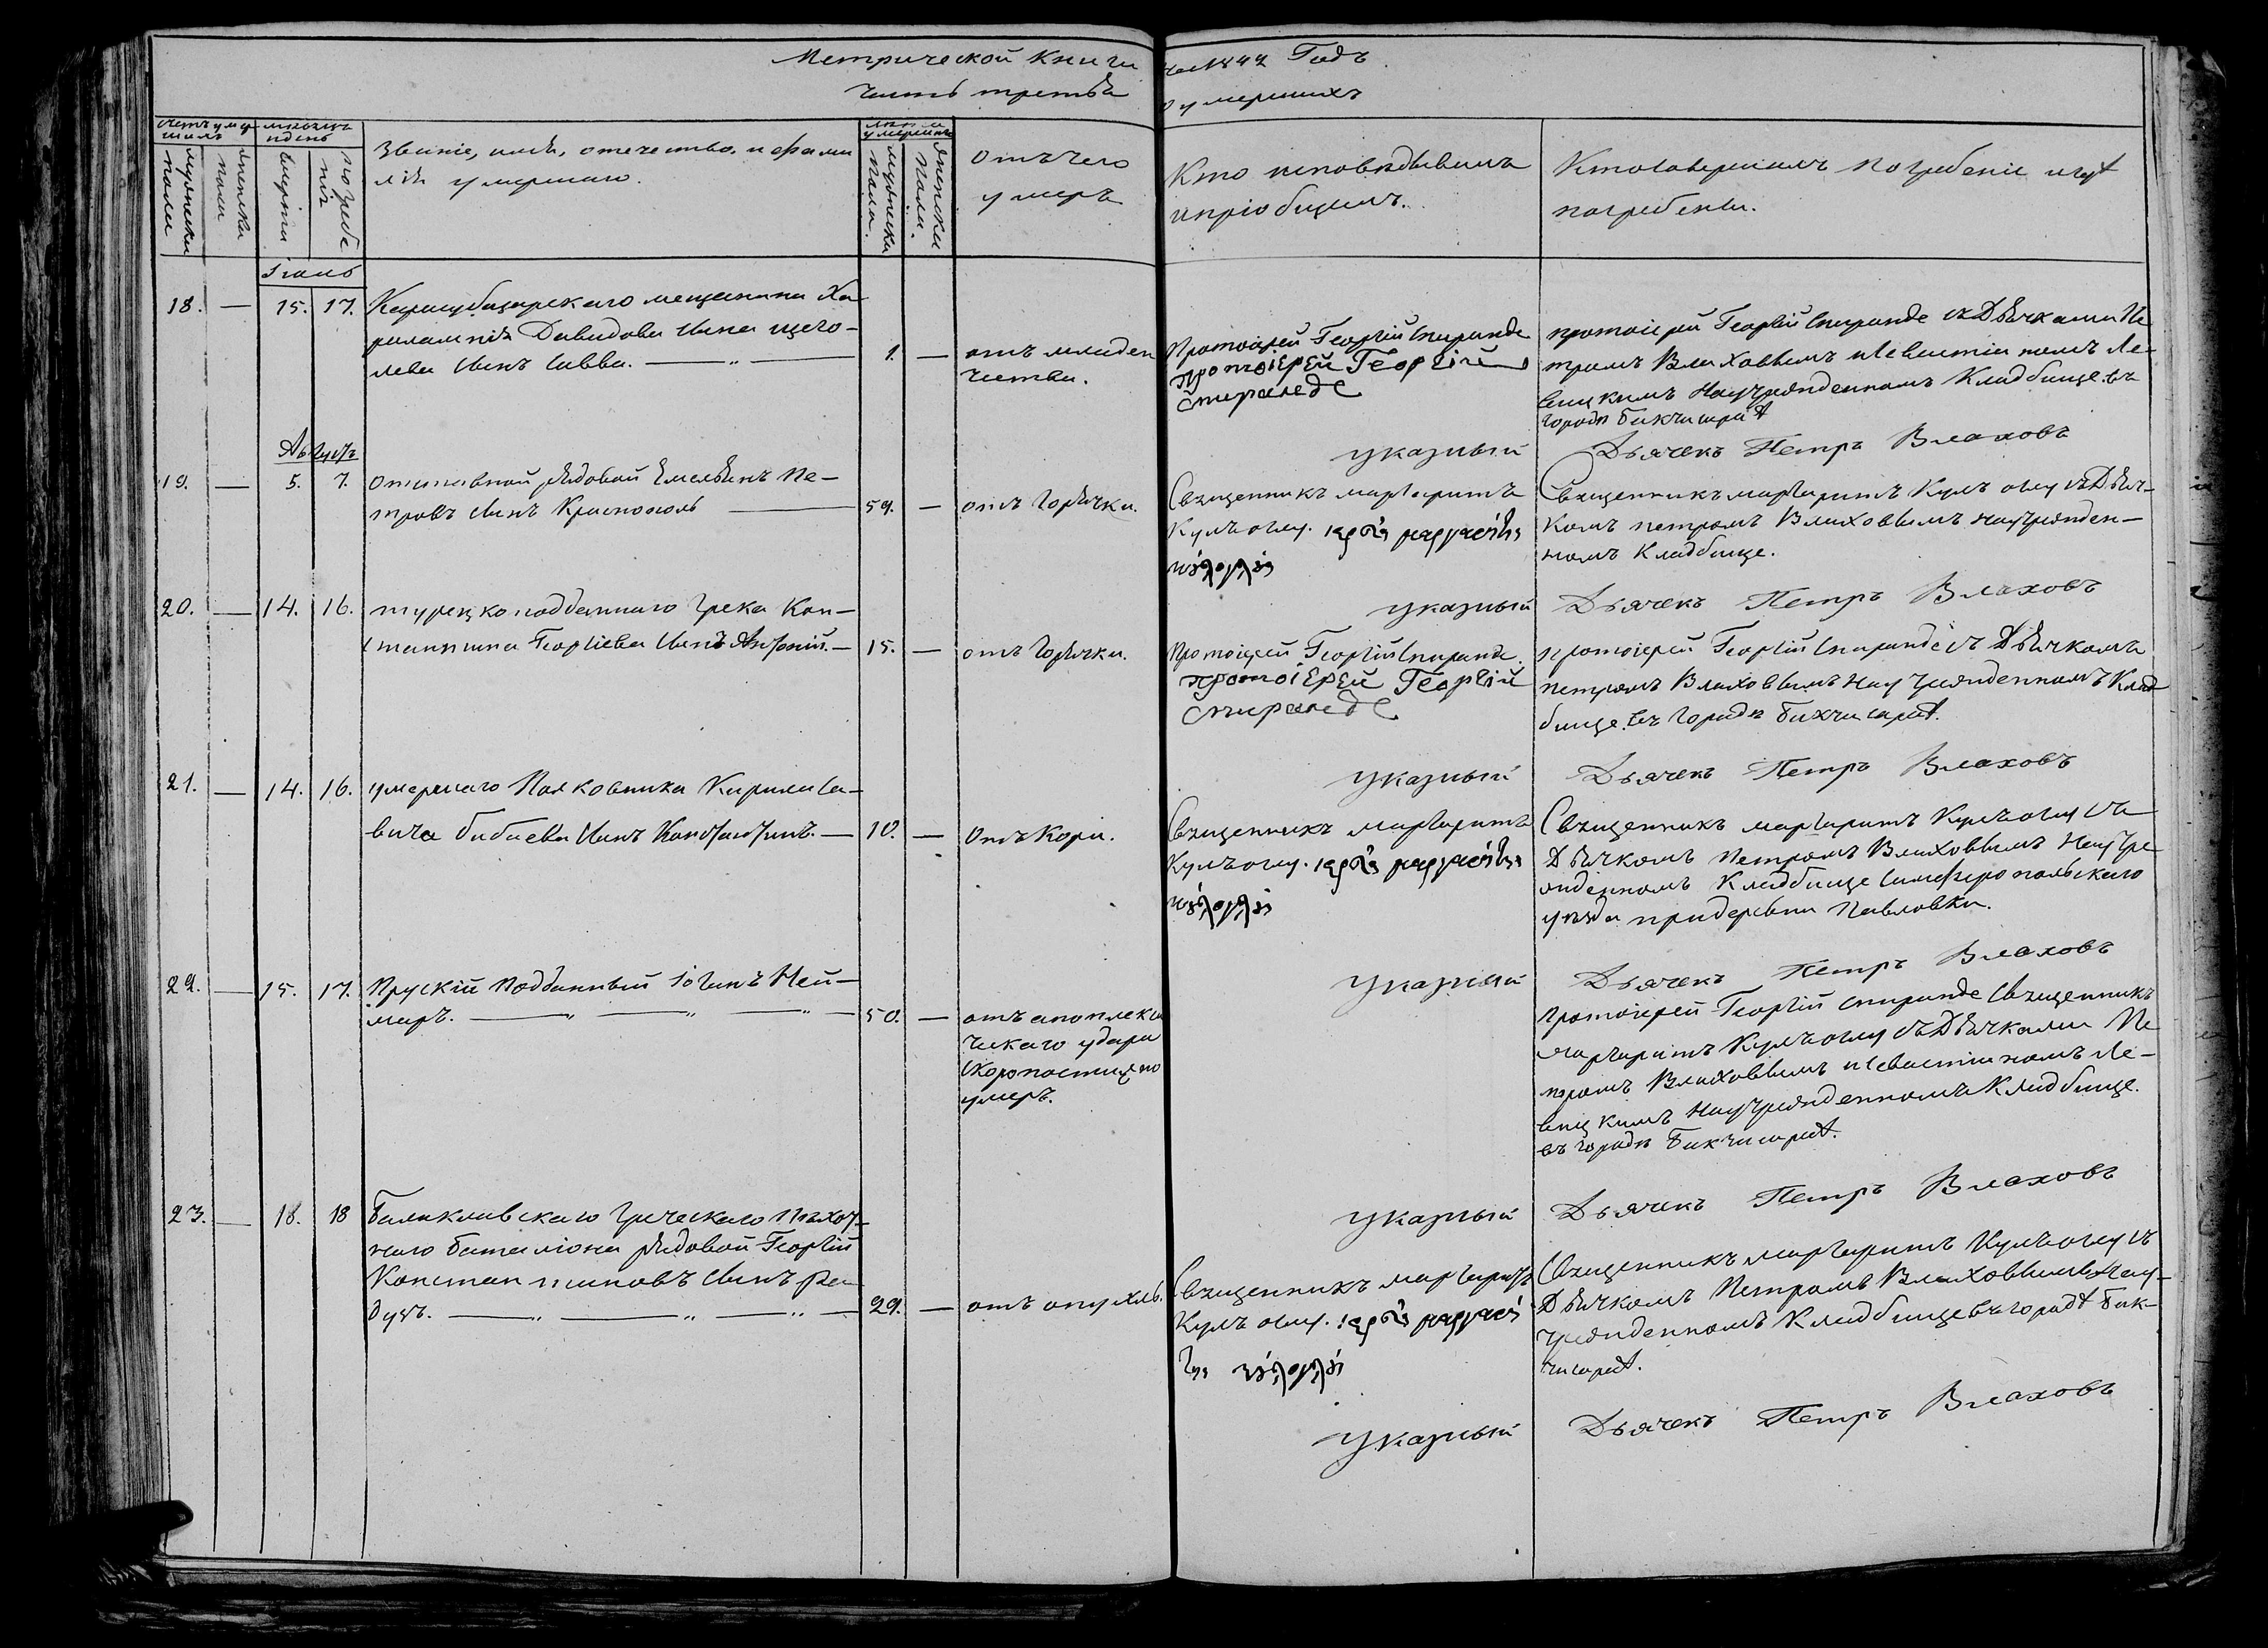 Метрической Книги на 1842 Годъ.
часть третья о умершихъ
Счетъ умершихъ
мужеска пола
женска пола
месяцъ и день
смерти
погребенія
Званіе, имя, отечество, и фамилія умершаго.
лета умершихъ
мужеска пола.
женска пола.
отъ чего
умеръ
Кто исповедывалъ
и пріобщалъ.
Кто совершалъ погребеніе и где
погребены.
Іюль
18. — 15. 17. Карасубазарскаго мещанина Ха-
ралампія Давидова сына щего-
лева сынъ Савва. — „ —
1. — отъ младен
чества.
Протоіерей Георгій Спиранде
протоіерей Георгій
Спиранде
протоіерей Георгій Спиранде съ Дьячками Пе
тромъ Влаховымъ и Севастіаномъ Ле-
вицкимъ на учрежденномъ Кладбище въ
городе Бахчисараѣ
указный Дьячекъ Петръ Влаховъ
Августъ
19. — 5. 7. отставной рядовой Емельянъ Пе-
тровъ сынъ Краснополь —
59. — отъ Горячки.
Священникъ маргаритъ
Кулъ оглу. ιερεύς μαργαρίτης
κούλογλους
Священникъ маргаритъ Кулъ оглу съ Дьяч-
комъ петромъ Влаховымъ на учрежден-
номъ Кладбище.
указный Дьячекъ Петръ Влаховъ
20. — 14. 16. турецкоподданнаго Грека Кон-
стантина Георгіева сынъ Антоній. —
15. — отъ Горячки.
Протоіерей Георгій Спиранде.
протоіерей Георгій
Спиранде
протоіерей Георгій Спиранде съ Дьячкомъ
петромъ Влаховымъ на учрежденномъ Клад
бище въ городе Бахчисараѣ.
указный Дьячекъ Петръ Влаховъ
21. — 14. 16. умершаго Полковника Кирила Са-
вича Бабаева сынъ Константинъ. —
10. — Отъ Кори.
Священникъ маргаритъ
Кулъ оглу. ιερεύς μαργαρίτης
κούλογλους
Священникъ маргаритъ Кулъ оглу съ
Дьячкомъ Петромъ Влаховымъ на учре
жденномъ Кладбище Симферопольскаго
уезда при деревни Павловки.
указный Дьячекъ Петръ Влаховъ
22. — 15. 17. Прускій Подданный Іоганъ Ней-
маръ. — „ — „ — „ —
50. — отъ апоплекси
ческаго удара
скоропостижно
умеръ.
Протоіерей Георгій Спиранде Священникъ
маргаритъ Кулъ оглу съ Дьячками Пе
тромъ Влаховымъ и Севастіаномъ Ле-
вицкимъ на учрежденномъ Кладбище.
въ городе Бахчисараѣ.
указный Дьячекъ Петръ Влаховъ
23. — 18. 18 Балаклавскаго Греческаго пехот-
наго баталіона рядовой Георгій
Константиновъ сынъ
29. — отъ опухль.
Священникъ маргаритъ
Кулъ оглу. ιερεύς μαργαρί
της κούλογλους
Священникъ маргаритъ Кулъ оглу съ
Дьячкомъ Петромъ Влаховымъ на у-
чрежденномъ Кладбище въ городѣ Бах-
чисараѣ.
указный Дьячекъ Петръ Влаховъ